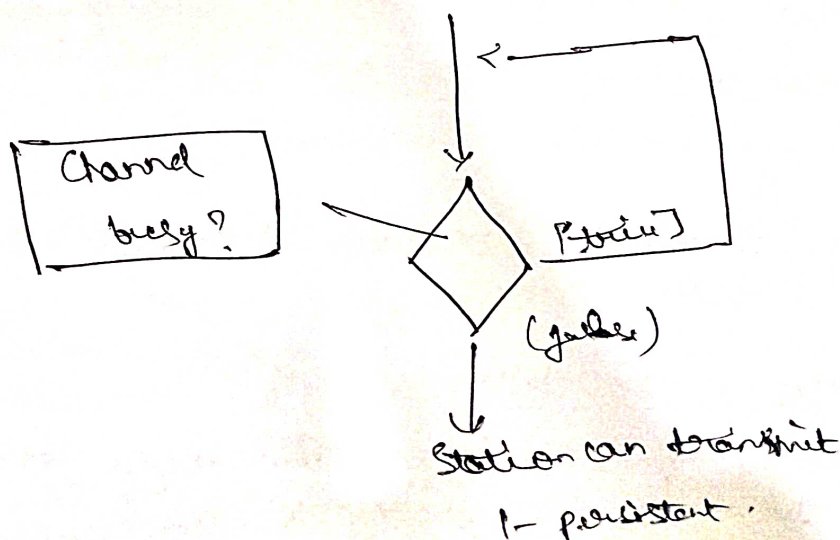 Channel
busy?
[true]
(false)
Station can transmit
1- persistent.